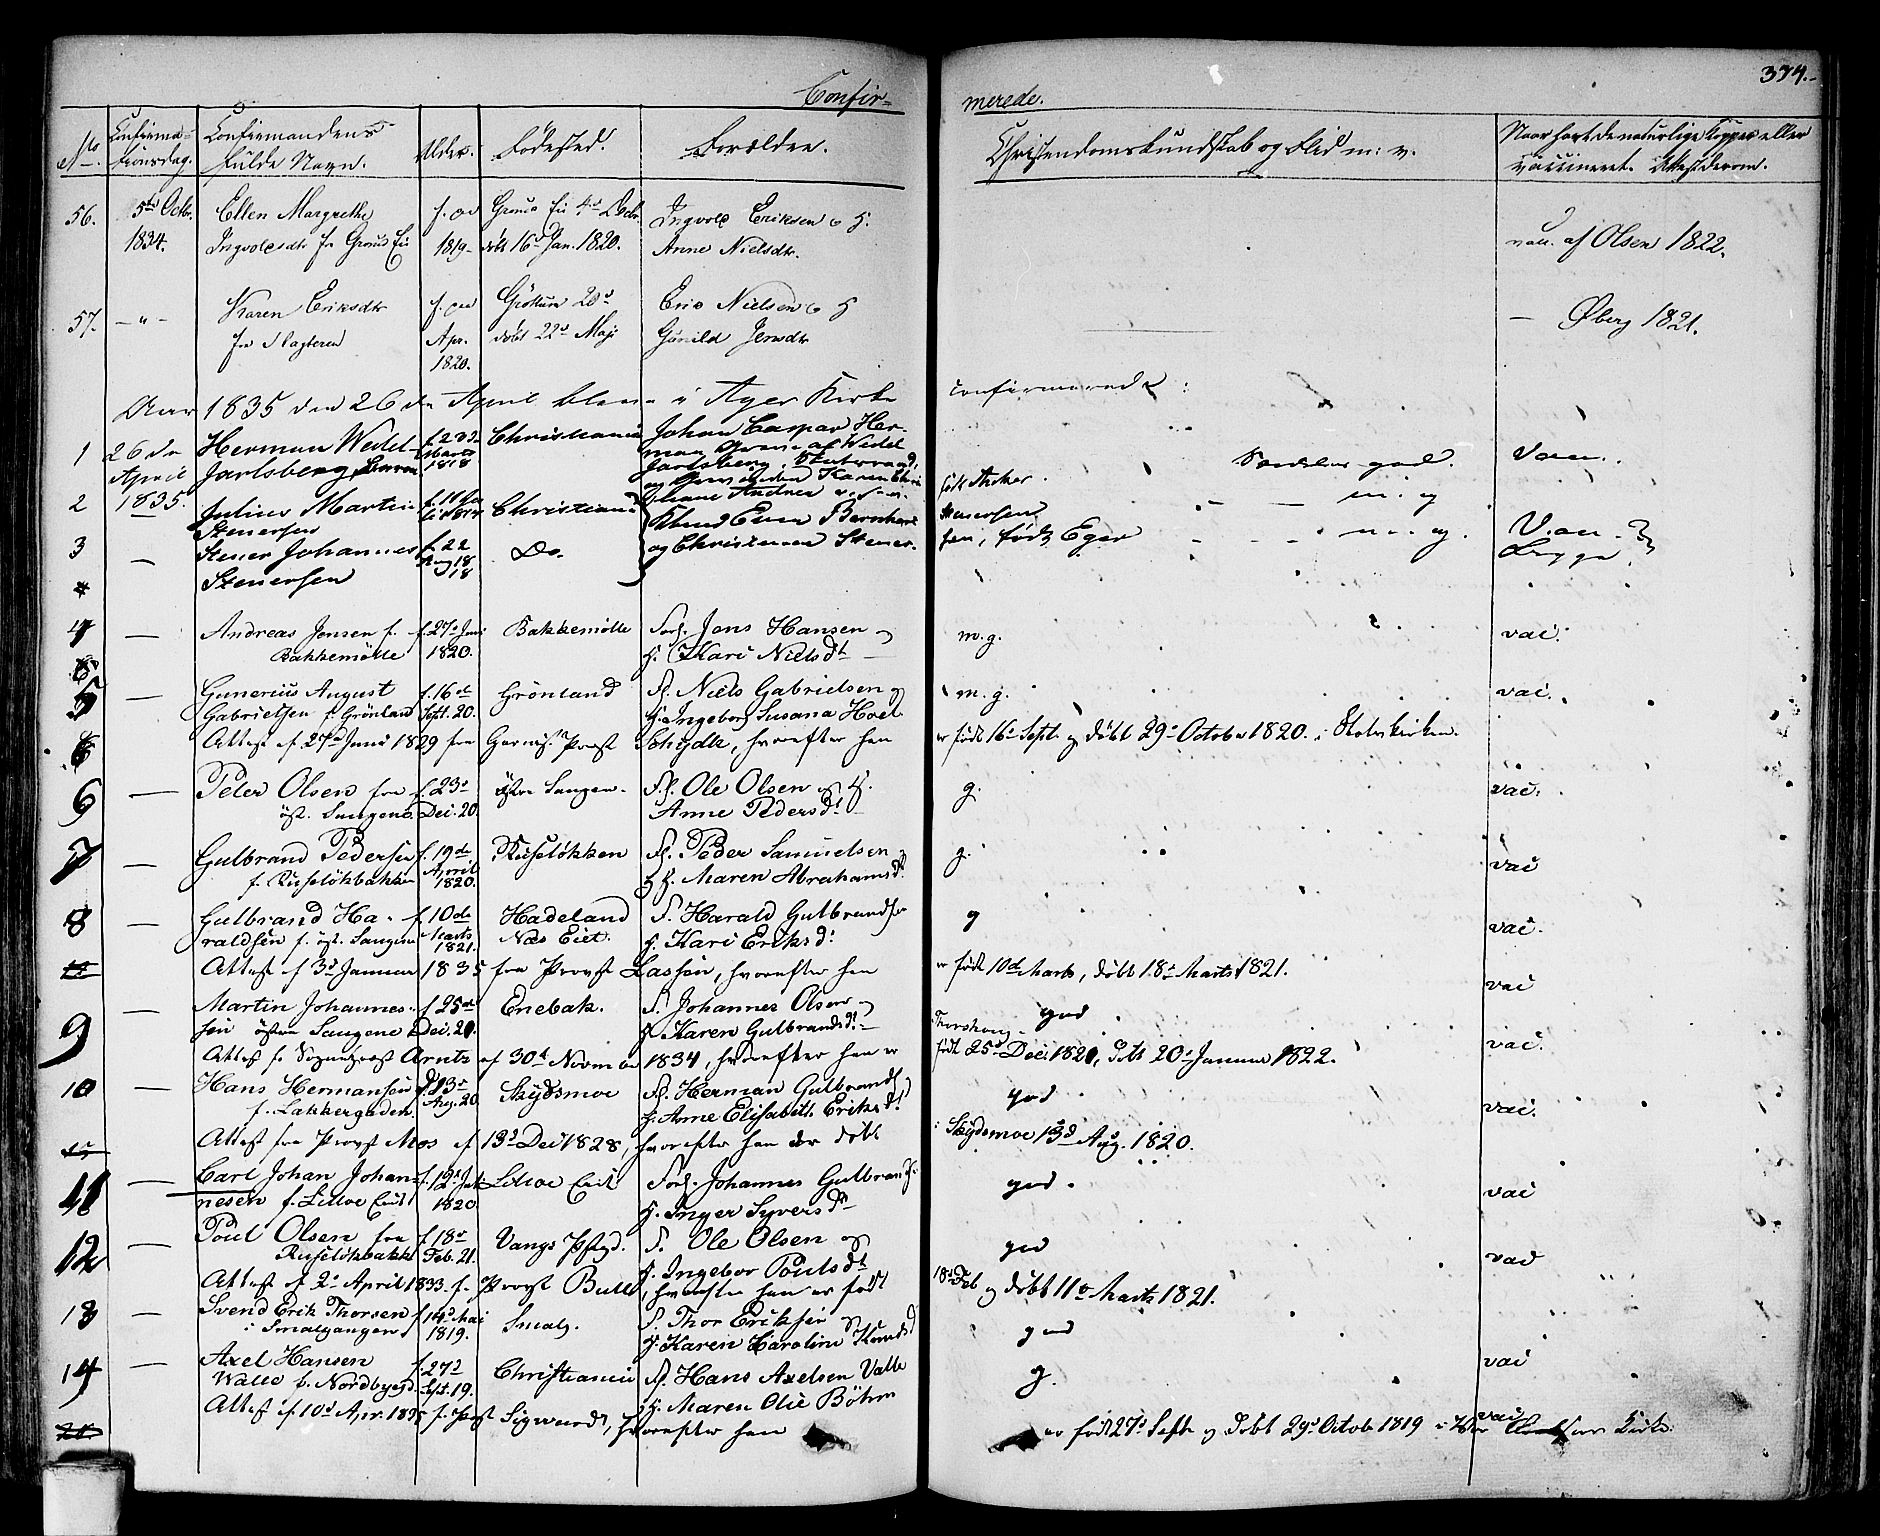 Confir-
merede.
374.-
No.
Confirma-
tionsdag.
Confirmandens
fulde Navn.
Alder.
Fødested.
Forældre.
Christendomskundskab og Flid m: v.
Naar havt de naturlige Kopper eller
vaccineret. Attest derom.
56.
5te Octbr.
1834.
Ellen Margrethe
Ingvolds dtr fra
1819-
døbt 16 Jan. 1820.
Ingvold Eriksen og H.
Anne Nielsdtr.
vacc. af Olsen 1822.
57. - " -
Karen Eriksdtr
fra Slagteren
Apr.
1820.
døbt 22d Maji
Eric Nielsen og H
Gunild Jensdtr
- Øberg 1821.
Aar 1835 den 26de April blev i Ager Kirke
confirmerede:
1
26de
April
1835.
Herman Wedel-
Jarlsberg, Baron
f. 23de
Marts
1818
Christiania
Johan Caspar Her-
man Greve af Wedel
Jarlsberg,
og Grevinden Karen Chri-
stiane Andrea
født Anker.
Særdeles god.
Vacc.
2
Julius Martin
Stenersen
Christiania
Knud Even Bernhard
Stenersen
3 -
Stener Johannes
Stenersen
f. 22
Aug 18
18
Do.
og Christense Stener-
sen, født Eger
m. g.
Vacc.
4 -
Andreas Jensen f.
Bakkemølle
f. 27d Juni
1820.
Bakkemølle
For. Jens Hansen og
H. Kari Nielsdt
m. g.
vac.
5 -
Gunerius August
Gabrielsen f. Grönland
f. 16de
Sept. 20.
Grönland
F. Niels Gabrielsen og
H. Ingeborg Susana Hoel
m. g.
vac.
Attest af 27d Juni 1829 fra Garnis. Præst Schydtz, hvorefter han
er født 16d Sept. og døbt 29d October 1820. i
6 -
Peter Olsen fra
öst. Sangene
f. 23d
Dec. 20.
östre Sangen-
F. Ole Olsen og H.
Anne Pedersdt
g.
vac.
7 -
Gulbrand Pedersen
f. Ruseløkbakken
f. 19de
April
1820.
Ruseløkken
F. Peder Samuelsen
og H. Maren Abrahamsd.
g.
vac
8 -
Gulbrand Ha-
raldsen f. öst. Sangen
f. 10de
Marts
1821.
Hadeland
Næs Eiet.
F. Harald Gulbrandsen
H. Kari Eriksd.
g
vac.
Attest af 3d Januar 1835 fra Provst Lassen, hvorefter han
er født 10d Marts, døbt 18d Marts 1821.
vac
9 -
Martin Johannes-
sen östre Sangene
f. 25de
Dec. 21.
Enebak.
F. Johannes Olsen og
H. Karen Gulbrandsdt.
god
vac.
Attest fr. Sognepræst Arntz af 30d Novmber 1834, hvorefter han er
født 25d Dec. 1821, døbt 20d Januar 1822.
10 -
Hans Hermansen
f. Lakkergaden
f. 13d
Aug. 20
Skydsmoe
F. Herman Gulbrands.
H. Anne Elisabeth Eriksd.
god
vac.
Attest fra Provst Mos af 13d Dec 1828, hvorefter han der døbt
i Skydsmoe 13d Aug. 1820.
11 -
Carl Johan Johan-
nesen f. Lilloe Eiet
1820
Lilloe Eiet
For. Johannes Gulbrands.
H. Inger Syversdt
god.
vac
12 -
Poul Olsen fra
Ruseløkbakk
f. 18d
Feb. 21.
Vangs Pstgd.
F. Ole Olsen og
H. Ingebor Poulsdt
god
vac
Attest af 2d April 1833. f. Provst Bull, hvorefter han er født
18d Feb og døbt 11d Marts 1821.
13 -
Svend Erik Thorsen
i Smalgangen
f. 14d Mai
1819.
Smalg.
F. Thor Eriksen og
H. Karen Caroline Knudsd
god
vac
14 -
Axel Hansen
Walle f. Nordbygd.
f. 27d
Sept. 19.
Christiania
F. Hans Axelsen Valle
H. Maren Olie Böhm
g.
vac
Attest af 10d Apr. 1835 f. Præst Sigwardt, hvorefter han
er født 27d Sept. og døbt 29d Octob 1819 i Kirke.